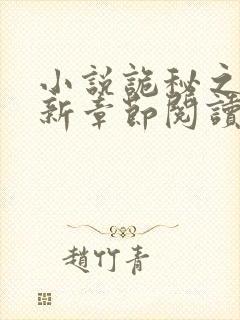 小説詭秘之
新章節閱讀
趙竹青